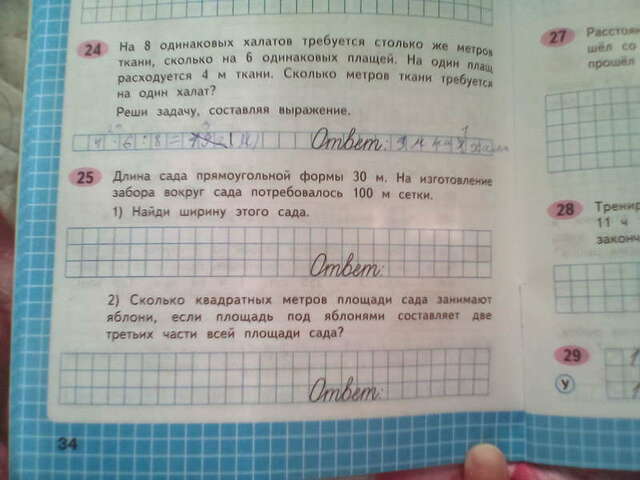 24 На 8 одинаковых халатов требуется столько же метров
ткани, сколько на 6 одинаковых плащей. На один плащ
расходуется 4 м ткани. Сколько метров ткани требуется
на один халат?
Реши задачу, составляя выражение.
Ответ:
25 Длина сада прямоугольной формы 30 м. На изготовление
забора вокруг сада потребовалось 100 м сетки.
1) Найди ширину этого сада.
Ответ:
2) Сколько квадратных метров площади сада занимают
яблони, если площадь под яблонями составляет две
третьих части всей площади сада?
Ответ:
34
27 Расстоян
шёл со
прошёл
28 Тренир
11 ч
законч
29
У